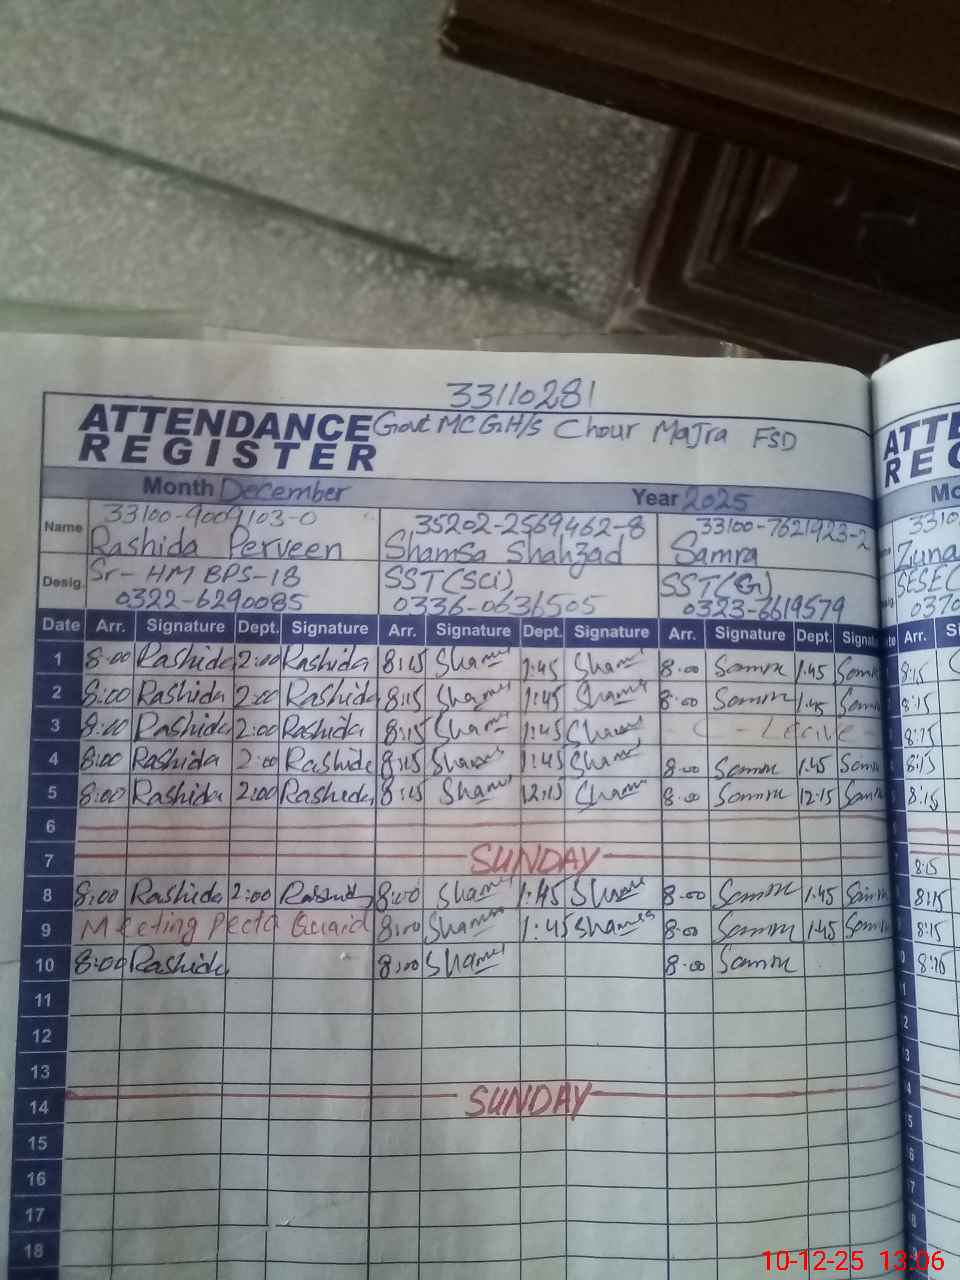 33110281
ATTENDANCE REGISTER Govt MC G.H/S Chour Majra FSD
Month December Year 2025
Name 33100-9009103-0 35202-2569462-8 33100-7621923-2
Rashida Perveen Shamsa Shahzad Samra
Desig. Sr-HM BPS-18 SST(Sci) SST(G)
0322-6290085 0336-0636505 0323-6619579
Date Arr. Signature Dept. Signature Arr. Signature Dept. Signature Arr. Signature Dept.
1 8:00 Rashida 2:00 Rashida 8:15 Shams 1:45 Shams 8:00 Samra 1:45 Samra
2 8:00 Rashida 2:00 Rashida 8:15 Shams 1:45 Shams 8:00 Samra 1:45 Samra
3 8:00 Rashida 2:00 Rashida 8:15 Shams 1:45 Shams C-Leave-
4 8:00 Rashida 2:00 Rashida 8:15 Shams 1:45 Shams 8:00 Samra 1:45 Samra
5 8:00 Rashida 2:00 Rashida 8:15 Shams 12:15 Shams 8:00 Samra 12:15 Samra
6
7 SUNDAY
8 8:00 Rashida 2:00 Rashida 8:00 Shams 1:45 Shams 8:00 Samra 1:45 Samra
9 Meeting Pecta Quaid 8:00 Shams 1:45 Shams 8:00 Samra 1:45 Samra
10 8:00 Rashida 8:00 Shams 8:00 Samra
11
12
13
14 SUNDAY
15
16
17
18
ATTE
RE
Mo
3310
Zuna
SESE
0370
Arr.
8:15
8:15
8:15
8:15
8:15
8:15
8:15
8:15
10-12-25 13:06